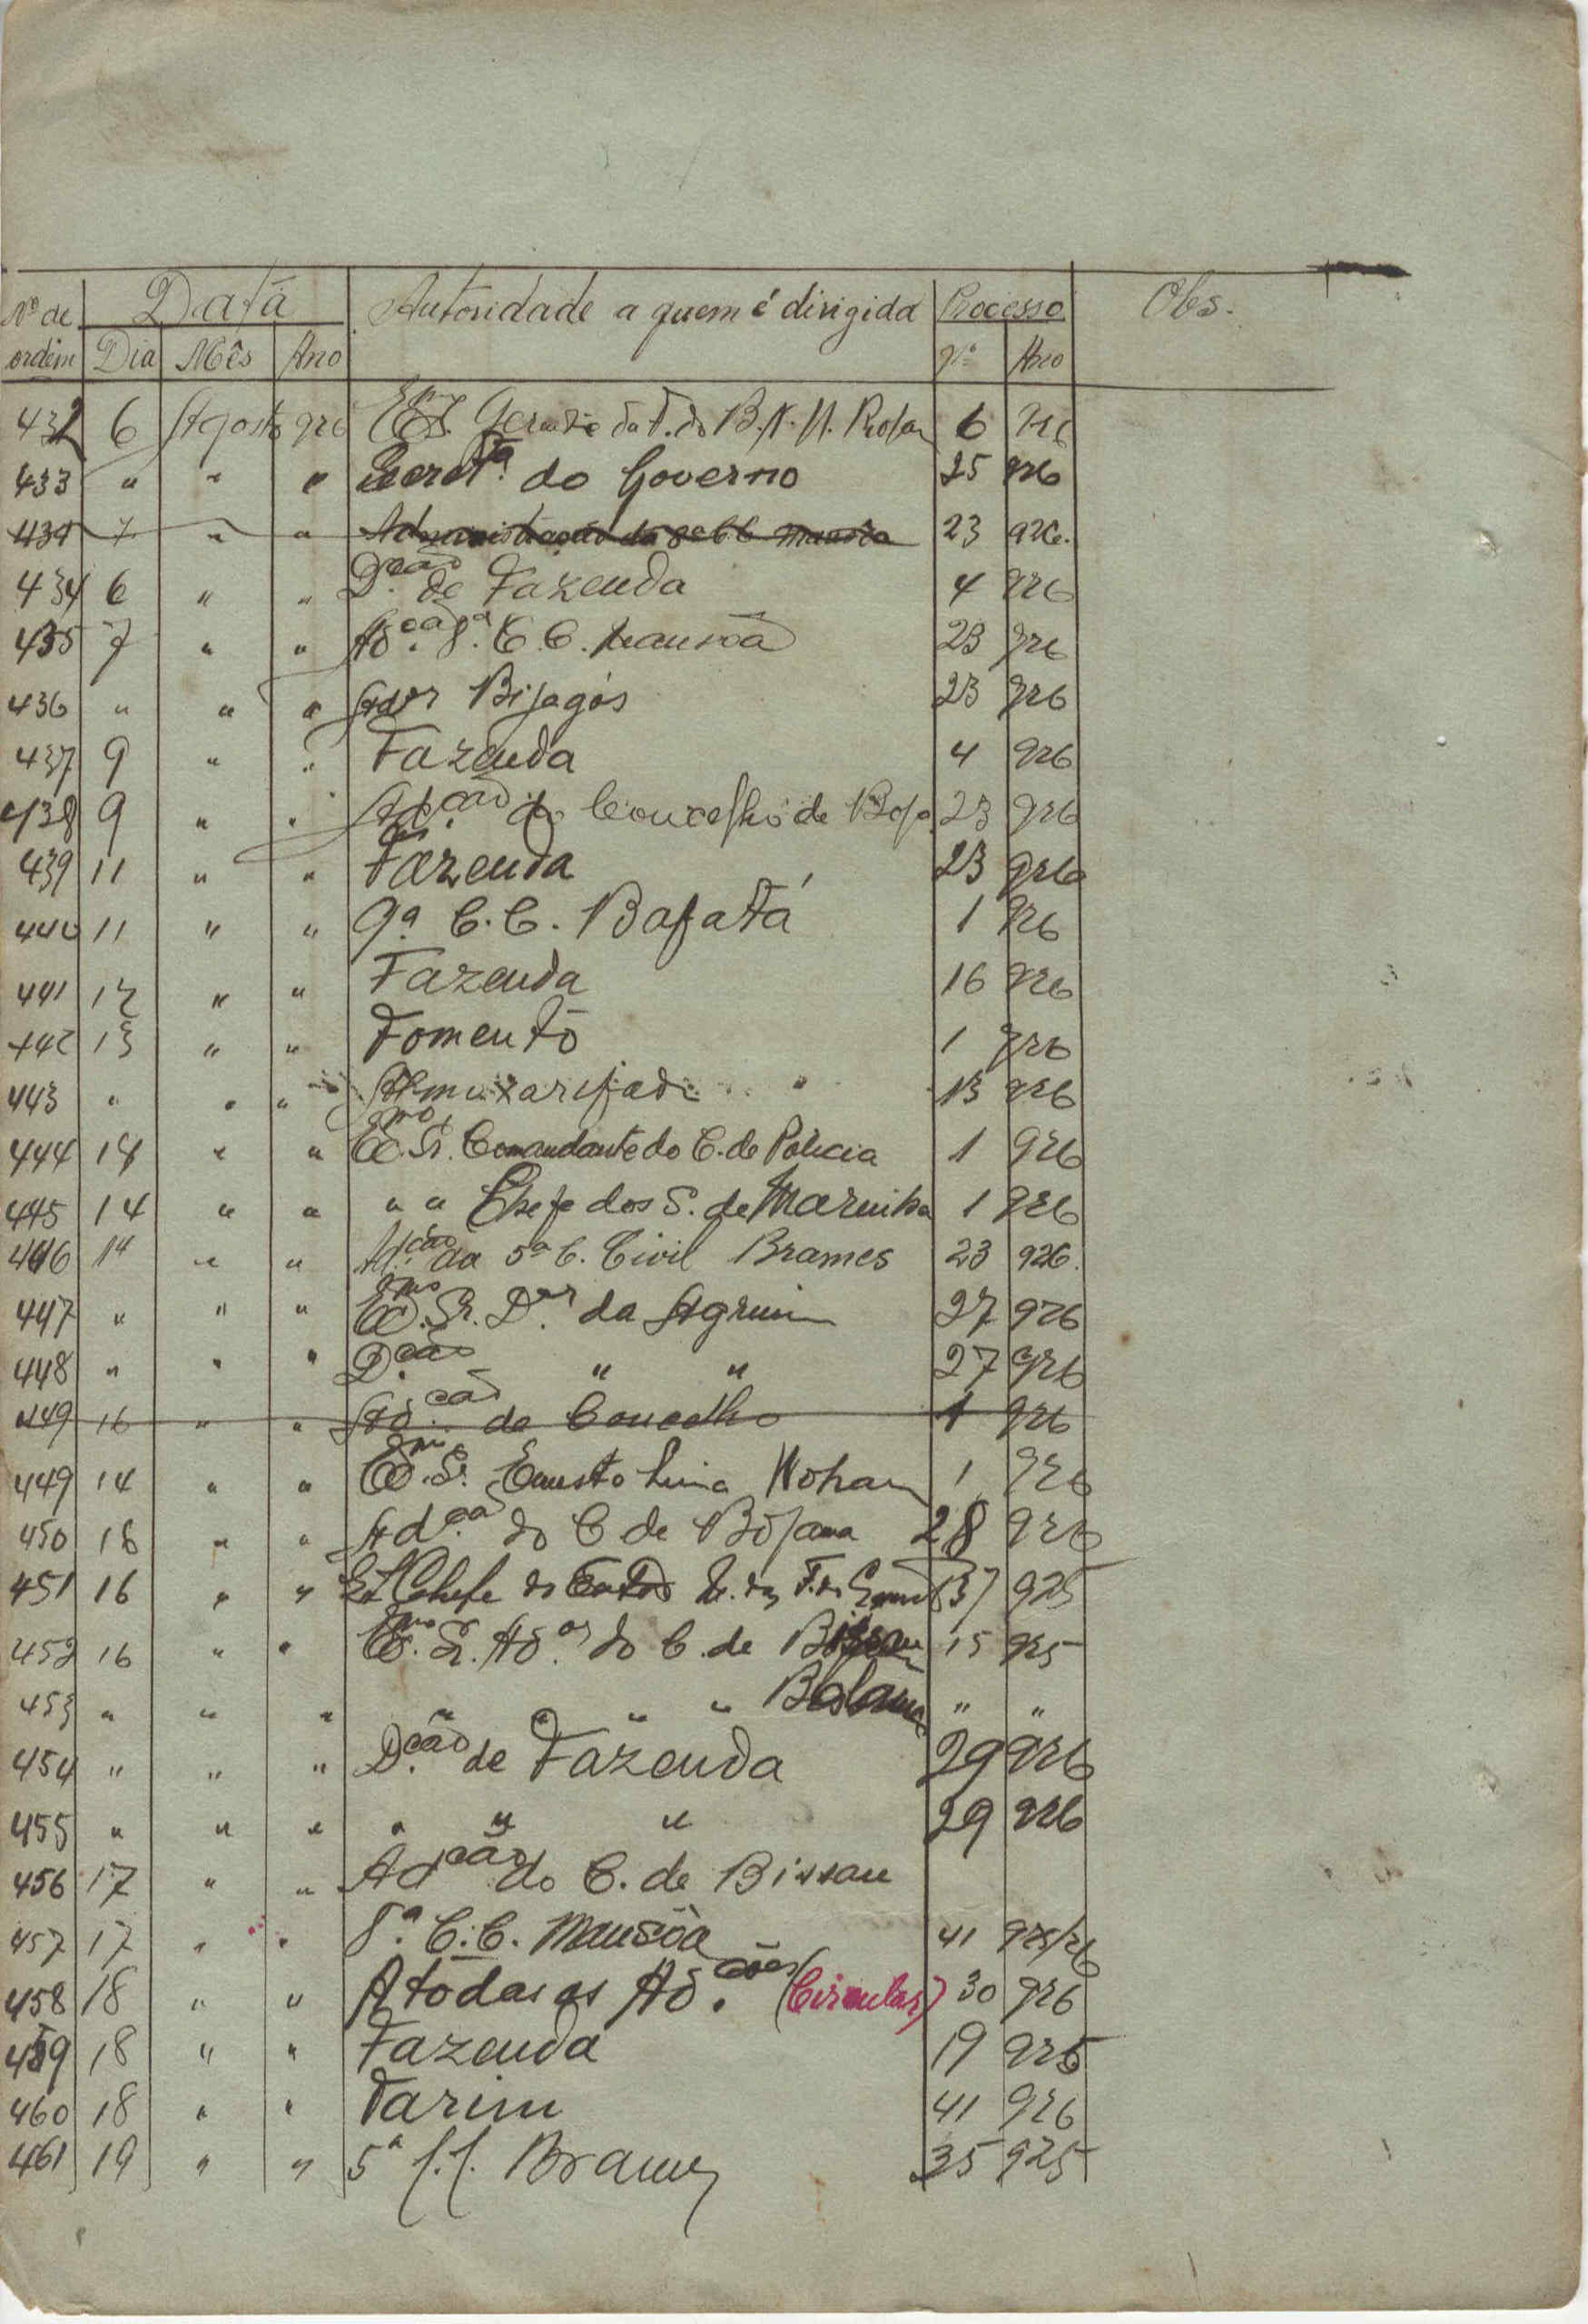 Nº de Data Autoridade a quem é dirigida Processo Obs.
ordem Dia Mês Ano Nº Ano
432 6 Agosto 926 Gerente da F. do B. N. U. 6 926
433 " " " Secretª. do Governo 25 926
434 7 " " Administração da 8ª C C Mansôa 23 926.
434 6 " " D.ção de Fazenda 4 926
435 7 " " Ad.ção 8ª. C. C. Mansôa 23 926
436 " " " Ador Bijagós 23 926
437 9 " " Fazenda 4 926
438 9 " " Ad.ção do Concelho de Bola 23 926
439 11 " " Fazenda 23 926
440 11 " " 9ª. C. C. Bafatá 1 926
441 12 " " Fazenda 16 926
442 13 " " Fomento 1 926
443 " " " Almoxarifado 13 926
444 14 " " Exmo. Sr. Comandante do C. de Policia 1 926
445 14 " " " " Chefe dos S. de Marinha 1 926
446 14 " " Ad.ção da 5ª C. Civil Brames 23 926.
447 " " " Exmo. Sr. D.or da Agrim 27 926
448 " " " D.ção " " 27 926
449 16 " " Ad.ção do Concelho 1 926
449 14 " " Exmo. Sr. Fausto Lima 1 926
450 16 " " Ad.ção do C de Bolama 28 926
451 16 " " Chefe 37 925
452 16 " " Exmo. Sr. Ad.or do C. de Bissau 15 925
453 " " " " " " " Bolama " "
454 " " " D.ção de Fazenda 29 926
455 " " " " " " 29 926
456 17 " " Adção do C. de Bissau
457 17 " " 8ª. C. C. Mansôa 41 925/26
458 18 " " A tôdas as Ad.ções (Circular) 30 926
459 18 " " Fazenda 19 925
460 18 " " Farim 41 926
461 19 " " 5ª C. C. Brames 35 925